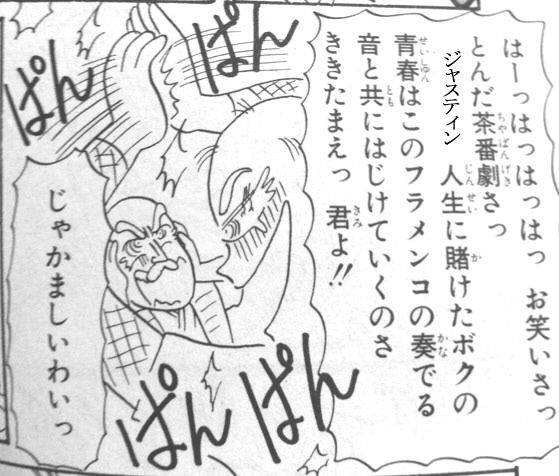 はーっはっはっはっ　お笑いさっ
とんだ茶番劇さっ
ジャスティン
人生に賭けたボクの
青春はこのフラメンコの奏でる
音と共にはじけていくのさ
ききたまえっ　君よ!!
ぱん
ぱん
じゃかましいわいっ
ぱん
ぱん